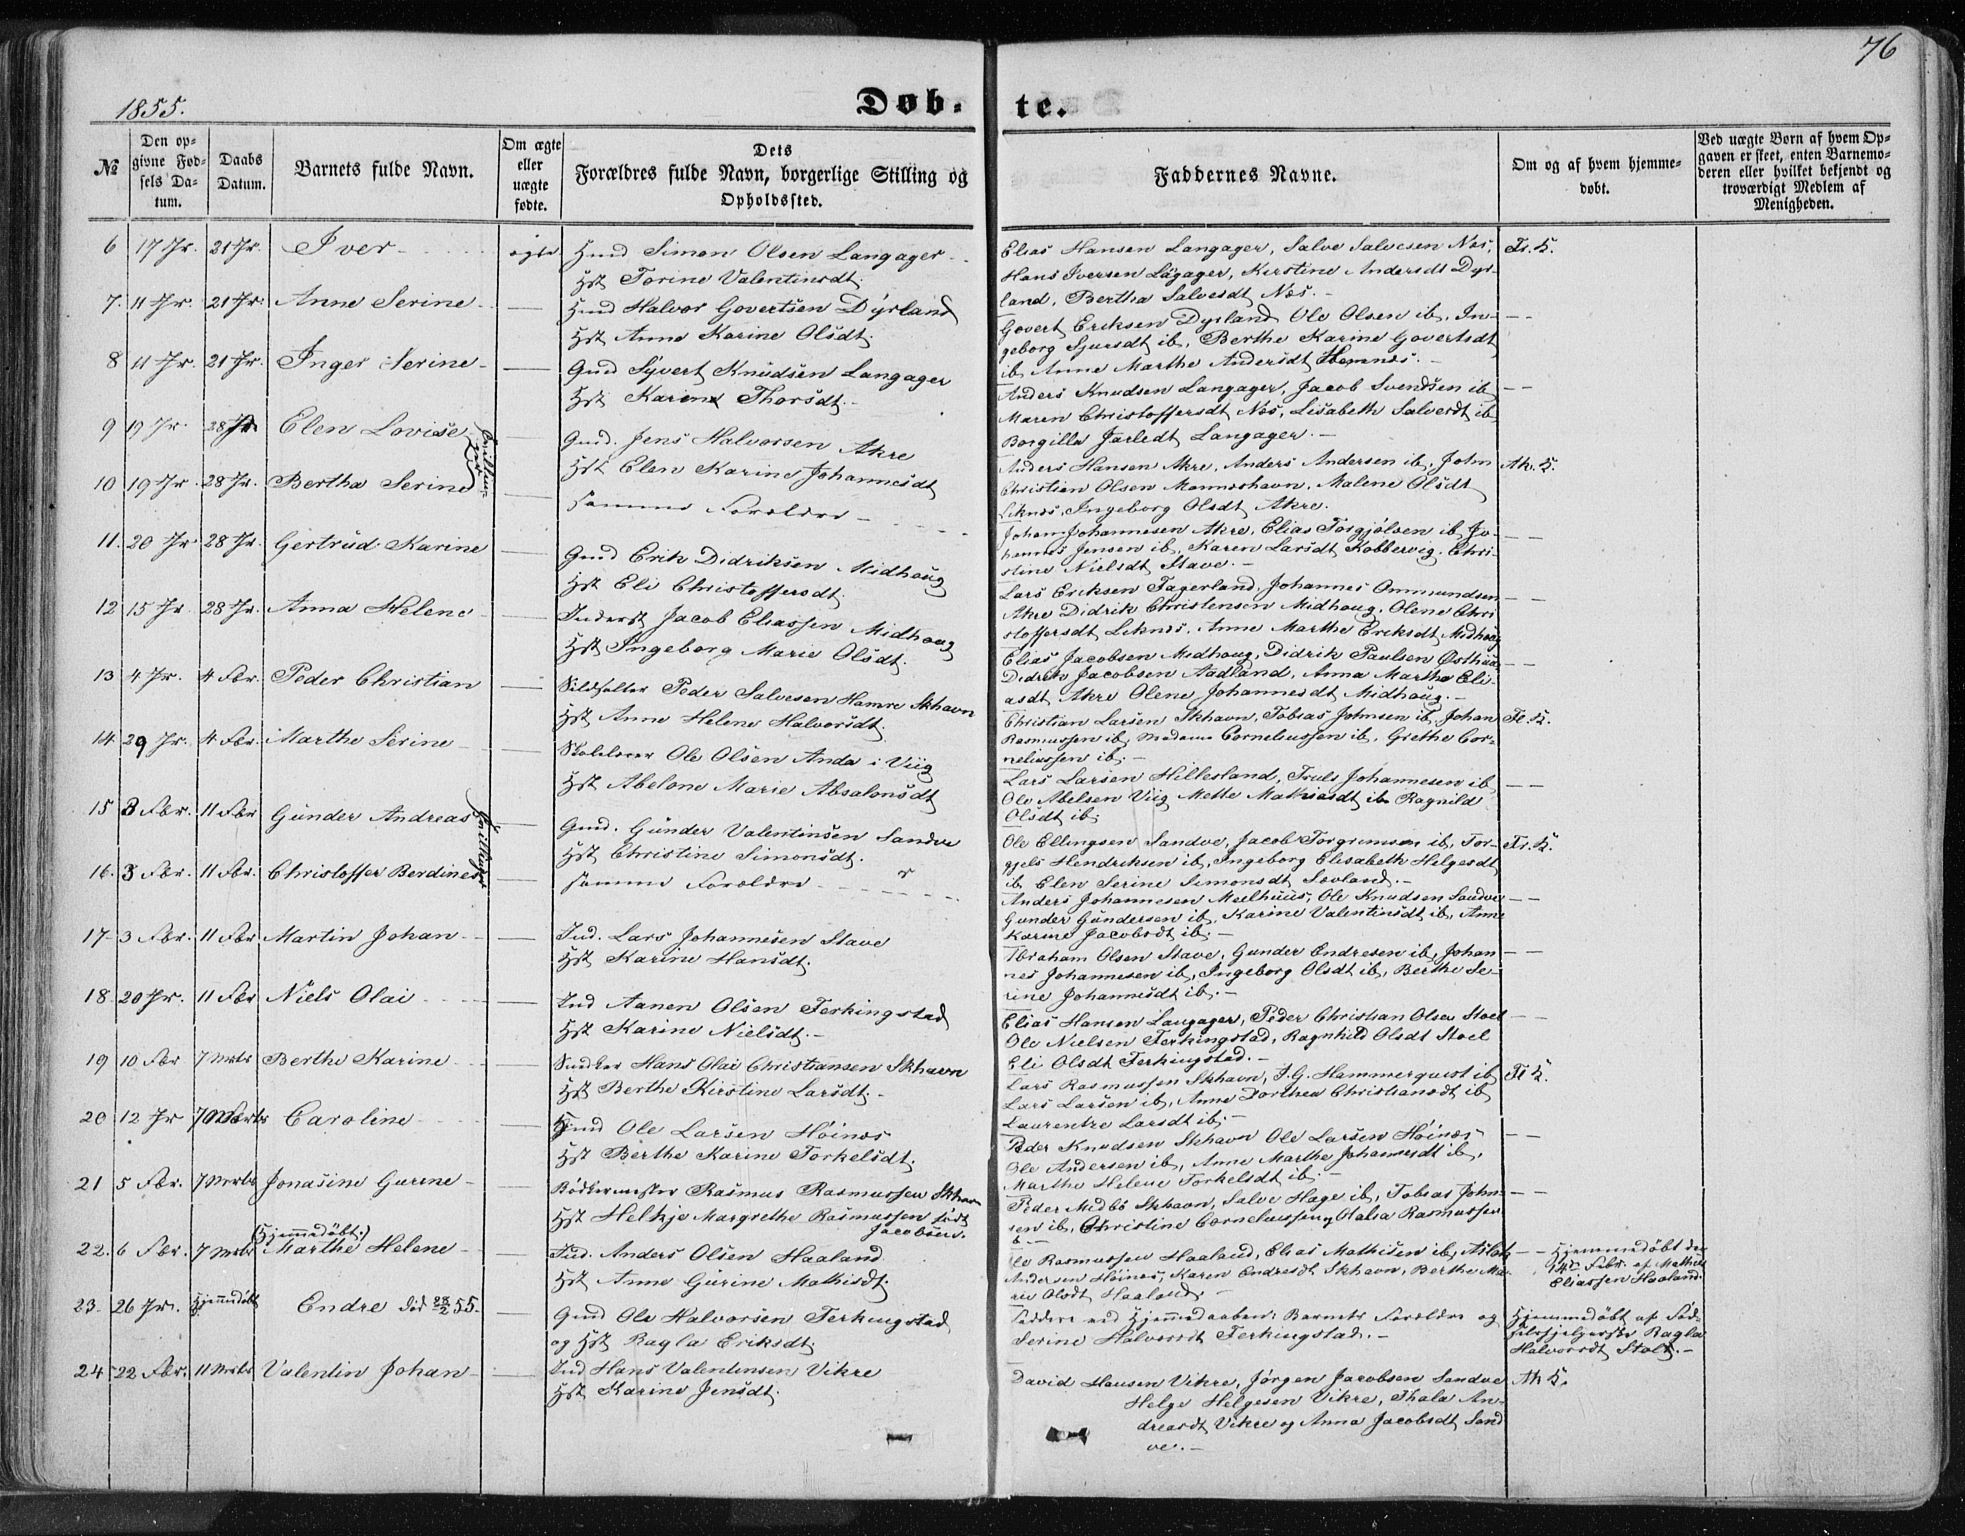 76
1855.
Døb-
te.
№
Den op-
givne Fød-
sels Da-
tum.
Daabs
Datum.
Barnets fulde Navn.
Om ægte
eller
uægte
fødte.
Dets
Forældres fulde Navn, borgerlige Stilling og
Opholdssted.
Faddernes Navne.
Om og af hvem hjemme-
døbt.
Ved uægte Børn af hvem Op-
gaven er skeet, enten Barnemo-
deren eller hvilket bekjendt og
troværdigt Medlem af
Menigheden.
6 17 Jr. 21 Jr. Iver ægte Simon Olsen Langager
Hst Torine Valentinsdt.
Elias Hansen Langager, Salve Salvesen Nes,
Hans Iversen Lagager, Kirstine Andersdt Dyr-
land, Bertha Salvesdt Nes.
7. 11 Jr. 21 Jr. Anne Serine — Halvor Govertsen Dyrland
Hst Anne Karine Olsdt.
Govert Eriksen Dyrland Ole Olsen ib, In-
geborg Sjursdt ib, Berthe Karine Govertsdt
ib Anne Marthe Andersdt Hemnes.
8 11 Jr. 21 Jr. Inger Serine — Gmd Syvert Knudsen Langager
Hst Karen Thorsdt.
Anders Knudsen Langager, Jacob Svendsen ib
Maren Christoffersdt Nes, Lisabeth Salvesdt ib
Borgilla Jarledt Langager.
9 19 Jr. 28 Jr. Elen Lovise Gmd. Jens Halvorsen Akre
Hst Elen Karine Johannesdt
Anders Hansen Akre, Anders Andersen ib, John
Christian Olsen Monneshavn, Malene Olsdt
Liknes, Ingeborg Olsdt Akre.
10 19 Jr 28 Jr. Bertha Serine
samme Forældre
Johan Johannesen Akre, Elias Torgjølsen ib Jo-
hannes Jensen ib, Karen Larsdt Kobbervig, Chri-
stine Nielsdt Stave.
11. 20 Jr 28 Jr. Gertrud Karine — Gmd Erik Didriksen Midhaug
Hst Eli Christoffersdt.
Lars Eriksen Fagerland, Johannes Ommundsen
Akre Didrik Christensen Midhoug, Olene Chri
stoffersdt Liknes, Anne Marthe Eriksdt Midhoug
12 15 Jr 28 Jr. Anna Helene — Inderst Jacob Eliassen Midhoug
Hst Ingeborg Marie Olsdt.
Elias Jacobsen Midhoug, Didrik Paulsen Østhus
Didrik Jacobsen Aadland, Anna Martha Eli-
asdt Akre Olene Johannesdt Midhoug.
13 4 Jr. 4 Fbr. Peder Christian — Sildsalter Peder Salvesen Hamre Skhavn
Hst Anne Helene Halvorsdt.
Christian Larsen Skhavn, Tobias Johnsen ib, Johan
Rasmussen ib, Madame Corneliussen ib, Grethe Cor-
neliussen ib.
14 29 Jr. 4 Fbr. Marthe Serine — Skolelærer Ole Olsen Anda i Viig
Hst Abelone Marie Absalonsdt
Lars Larsen Hillesland, Truls Johannesen ib,
Ole Abelsen Viig Mette Mathiasdt ib Ragnild
Olsdt ib.
15 3 Fbr. 11 Fbr Gunder Andreas Gmd. Gunder Valentinsen Sandve
Hst Christine Simonsdt.
Ole Ellingsen Sandve, Jacob Torgrimsen ib, Tor-
gjels Hendriksen ib, Ingeborg Elisabeth Helgesdt
ib, Elen Serine Simonsdt Sævland.
16. 3 Fbr. 11 Fbr. Christoffer Berdines
samme Forældre
Anders Johannesen Meelhuus, Ole Knudsen Sandve
Gunder Gundersen ib, Karine Valentinsdt ib, Anne
Karine Jacobsdt ib.
17 3 Fbr. 11 Fbr Martin Johan — Ind. Lars Johannesen Stave
Hst Karine Hansdt.
Abraham Olsen Stave, Gunder Endresen ib, Johan
nes Johannesen ib, Ingeborg Olsdt ib, Berthe Se-
rine Johannesdt ib.
18 20 Jr. 11 Fbr Niels Olai — Ind Aanen Olsen Ferkingstad
Hst Karine Nielsdt.
Elias Hansen Langager, Peder Christian Olsen Stoel
Ole Nielsen Ferkingstad, Ragnhild Olsdt Stoel
Eli Olsdt Ferkingstad.
19 10 Fbr 7 Mrts Berthe Karine — Hans Olai Christiansen Skhavn
Hst Berthe Kirstine Larsdt.
Lars Rasmussen Skhavn, J.G. Hammerquist ib
Lars Larsen ib, Anne Dorthea Christiansdt ib
Laurentze Larsdt ib.
20 12 Jr 7 Marts Caroline — Ole Larsen Høines
Hst Berthe Karine Torkelsdt.
Peder Knudsen Skhavn Ole Larsen Høines
Ole Andersen ib, Anne Marthe Johannesdt ib,
Marthe Helene Torkelsdt ib
21 5 Fbr. 7 Mrts Jonasine Gurine — Bødkermester Rasmus Rasmussen Skhavn
Hst Helkje Margrethe Rasmussen født
Jacobsen.
Peder Medbø Skhavn, Salve Hage ib, Tobias John-
sen ib, Christine Corneliussen, Oalia Rasmussen
22. 6 Fbr. 7 Mrts (Hjemmedøbt.)
Marthe Helene — Ind. Anders Olsen Haaland
Hst Anne Gurine Mathisdt.
Ole Rasmussen Haaland, Elias Mathisen ib, Aslak
Andersen Høines, Karen Endresdt Skhavn, Berthe Ma-
rie Olsdt Haaland.
Hjemmedøbt den
14de Febr. af Mathis
Eliassen Haaland.
23. 26 Jr. Hjemmedøbt Endre død 28/2 55. Gmd Ole Halvorsen Ferkingstad
og Hst Ragla Eriksdt
Faddere ved Hjemmedaaben: Barnets Forældre og
Serine Halvorsdt Ferkingstad.
Hjemmedøbt af Fød-
selshjelperske Ragla
Halvorsdt Stol.
24 22 Fbr. 11 Mrts Valentin Johan — Ind Hans Valentinsen Vikre
Hst Karine Jensdt.
David Hansen Vikre, Jørgen Jacobsen Sandve
Helge Helgesen Vikre, Thala An-
dreasdt Vikre og Anna Jacobsdt Sand
ve.